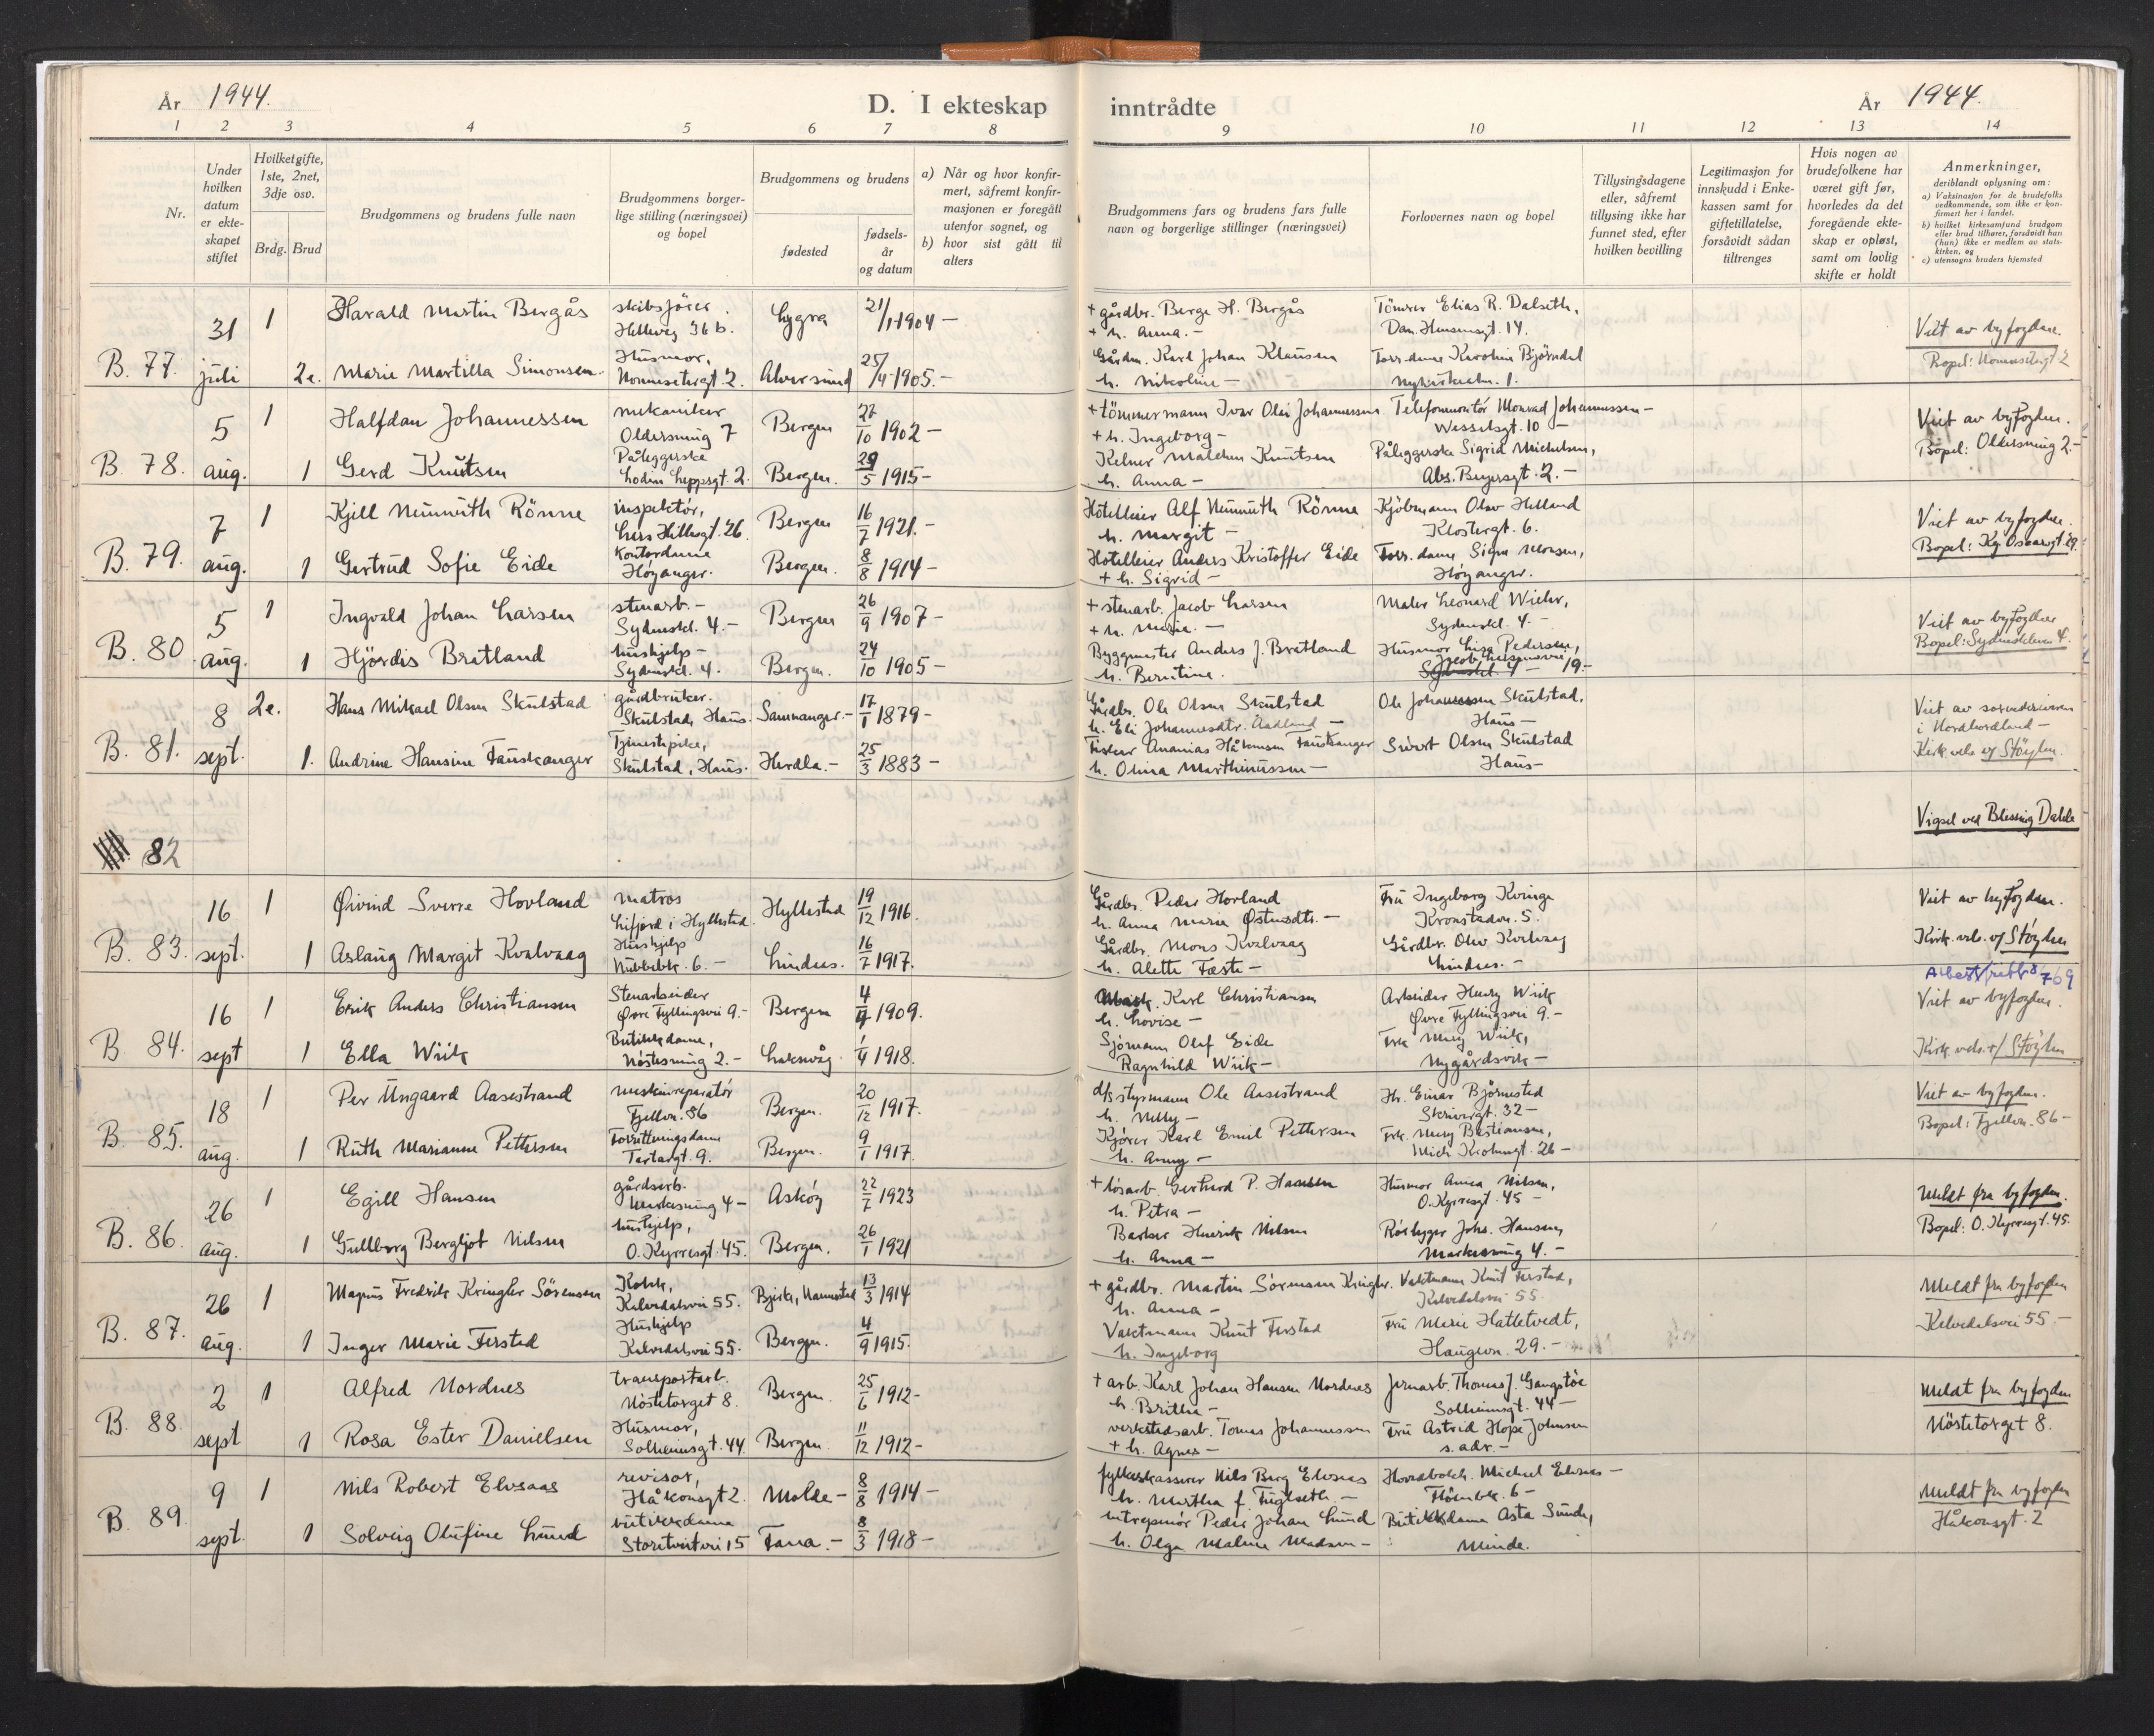 År 1944.
D. I ekteskap inntrådte
År 1944.
1 2 3 4 5 6 7 8 9 10 11 12 13 14
Nr.
Under hvilken datum er ekte-skapet stiftet
Hvilket gifte, 1ste, 2net, 3dje osv.
Brdg. Brud
Brudgommens og brudens fulle navn
Brudgommens borger-lige stilling (næringsvei) og bopel
Brudgommens og brudens
fødested
fødsels-år og datum
a) Når og hvor konfir-mert, såfremt konfir-masjonen er foregått utenfor sognet, og
b) hvor sist gått til alters
Brudgommens fars og brudens fars fulle navn og borgerlige stillinger (næringsvei)
Forlovernes navn og bopel
Tillysingsdagene eller, såfremt tillysing ikke har funnet sted, efter hvilken bevilling
Legitimasjon for innskudd i Enke-kassen samt for giftetillatelse, forsåvidt sådan tiltrenges
Hvis nogen av brudefolkene har været gift før, hvorledes da det foregående ekte-skap er opløst, samt om lovlig skifte er holdt
Anmerkninger, deriblandt oplysning om:
a) Vaksinasjon for de brudefolks vedkommende, som ikke er kon-firmert her i landet.
b) hvilket kirkesamfund brudgom eller brud tilhører, forsåvidt han (hun) ikke er medlem av stats-kirken, og
c) utensogns bruders hjemsted
B. 77. 31 juli
1 Harald Martin Bergås skibsfører. Hellevg 36 b. Lygra 21/1 1904 -
+ gårdbr. Berge H. Bergås
+ h. Anna. -
Tömrer Elias R. Dalseth,
Dan. Hansensgt. 14.
Viet av byfogden.
2e. Marie Martilla Simonsen. Husmor, Nonnesetergt. 2. Alversund 25/4 1905. -
Gårdm. Karl Johan Klausen
h. Nikoline -
Forr.dame Karoline Bjørndal
Nykirkealm. 1.
Bopel: Nonnesetergt 2
B. 78. 5 aug.
1 Halfdan Johannessen mekaniker Oldersmug 7 Bergen 27/10 1902 -
+ tömmermann Ivar Olai Johannessen
+ h. Ingeborg -
Telefonmontör Monrad Johannessen -
Wesselsgt. 10 -
Viet av byfogden.
1 Gerd Knutsen Påleggerske Lodin Leppsgt. 2. Bergen. 29/5 1915 -
Kelner Maldem Knutsen
h. Anna -
Påleggerske Sigrid Michelsen,
Abs. Beyersgt. 2. -
Bopel: Oldersmug 2. -
B. 79. 7 aug.
1 Kjell Neumuth Rönne inspektör, Lars Hillesgt. 26. Bergen 16/7 1921. -
Hotelleier Alf Neumuth Rönne
h. Margit -
Kjöbmann Olav Helland
Klostergt. 6.
Viet av byfogden.
1 Gertrud Sofie Eide Kontordame Höyanger. Bergen. 8/8 1914 -
Hotelleier Anders Kristoffer Eide
+ h. Sigrid -
Forr. dame Signe Monsen,
Höyanger.
Bopel: Kg. Oscarsgt. 29.
B. 80. 5 aug.
1 Ingvald Johan Larsen stenarb. - Sydneskl. 4. - Bergen 26/9 1907 -
+ stenarb. Jacob Larsen
+ h. Marie. -
Maler Leonard Wiehr,
Sydneskl. 4. -
Viet av byfogden
1 Hjördis Bratland hushjelp - Sydneskl. 4. Bergen. 24/10 1905 -
Byggmester Anders J. Bratland
h. Berntine.
Husmor Lisa Pedersen,
19. -
Bopel: Sydneskleven 4.
B. 81. 8 sept.
2e. Hans Mikael Olsen Skulstad gårdbruker. Skulstad, Haus. Samnanger. - 17/1 1879 -
Gårdbr. Ole Olsen Skulstad
h. Eli Johannesdtr. Aadland -
Ole Johannessen Skulstad,
Haus -
Viet av sorenskriveren
i Nordhordland -
1. Andrine Hansine Fauskanger Tjenestepike, Skulstad, Haus. Herdla. - 25/3 1883 -
Fisker Ananias Håkonsen Fauskanger
h. Olina Marthinussen -
Sivert Olsen Skulstad
Haus -
Kirk. vels v/ Støylen.
82
Vigsel ved Blessing Dahle
B. 83. 16 sept.
1 Øivind Sverre Hovland matros Lifjord i Hyllestad. Hyllestad 19/12 1916.
Gårdbr. Peder Hovland
h. Anna Marie Østensdtr. -
Fru Ingeborg Kvinge
Kronstadvn. 5.
Viet av byfogden.
1 Aslaug Margit Kvalvaag Hushjelp Nubbebk. 6. - Lindaas. 16/7 1917.
Gårdbr. Mons Kvalvaag
h. Alette Fæste -
Gårdbr. Olav Kvalvaag
Lindaas. -
Kirk. vels. v/ Støylen
B. 84. 16 sept
1 Erik Anders Christiansen Stenarbeider Øvre Fyllingsvei 9. - Bergen 4/9 1909.
Karl Christiansen
h. Lovise -
Arbeider Henry Wiik
Øvre Fyllingsvei 9. -
Viet av byfogden.
1 Ella Wiik Butikkdame, Nöstesmug 2. - Laksevåg. 1/4 1918.
Sjömann Olaf Eide
Ragnhild Wiik -
Frk Mary Wiik,
Nygårdsvik -
Kirk vels. v/ Støylen
B. 85. 18 aug.
1 Per Ungaard Aasestrand maskinreparatör Fjellvn. 86 Bergen. 20/12 1917.
d/s styrmann Ole Aasestrand
h. Nelly -
Hr. Einar Björnestad
Skrivergt. 32 -
Viet av byfogden.
1 Ruth Marianne Pettersen Forretningsdame Tartargt. 9. Bergen. 9/1 1917.
Kjörer Karl Emil Pettersen
h. Anny -
Frk. Mary Bastiansen,
Mich Krohnsgt. 26 -
Bopel: Fjellvn. 86 -
B. 86. 26 aug.
1 Egill Hansen gårdsarb. Markesmug 4 - Asköy 22/7 1923
+ lösarb. Gerhard P. Hansen
h. Petra -
Husmor Anna Nilsen,
O. Kyrresgt. 45 -
Meldt fra byfogden.
1 Gullborg Bergljot Nilsen hushjelp, O. Kyrresgt. 45. Bergen. 26/1 1921
Barber Henrik Nilsen
h. Anna -
Rörlegger Johs. Hansen,
Markesmug 4. -
Bopel: O. Kyrresgt. 45.
B. 87. 26 aug.
1 Magnus Fredrik Kringler Sörensen Kokk, Kalvedalsvei 55. 13/3 1914
+ gårdbr. Martin Sörensen Kringler.
h. Anna -
Vaktmann Knut Ferstad,
Kalvedalsvei 55.
Meldt fra byfogden
1 Inger Marie Ferstad Hushjelp Kalvedalsvei 55. Bergen. 4/9 1915.
Vaktmann Knut Ferstad
h. Ingeborg
Fru Marie Hatletvedt,
Haugevn. 29. -
Kalvedalsvei 55 -
B. 88. 2 sept
1 Alfred Nordnes transportarb. Nöstetorget 8. Bergen. 25/6 1912 -
+ arb. Karl Johan Hansen Nordnes
h. Britha -
Jernarb. Thomas J. Gangstöe
Solheimsgt. 44 -
Meldt fra byfogden
1 Rosa Ester Danielsen Husmor, Solheimsgt. 44. Bergen. 11/12 1912 -
verkstedsarb. Tomas Johannessen
+ h. Agnes -
Fru Astrid Hope Johnsen
s. adr. -
Nöstetorget 8.
B. 89. 9 sept.
1 Nils Robert Elvsaas revisor, Håkonsgt 2. Molde - 8/8 1914 -
fylkeskasserer Nils Berg Elvsaas
h. Martha f. Fuglseth. -
Michael Elvsaas -
Flöienbk. 6 -
Meldt fra byfogden
1 Solveig Olufine Lund butikkdame Storetveitvei 15 Fana. - 8/3 1918 -
entreprenör Peder Johan Lund
h. Olga Malene Madsen -
Butikkdame Asta Sunde,
Minde.
Håkonsgt. 2